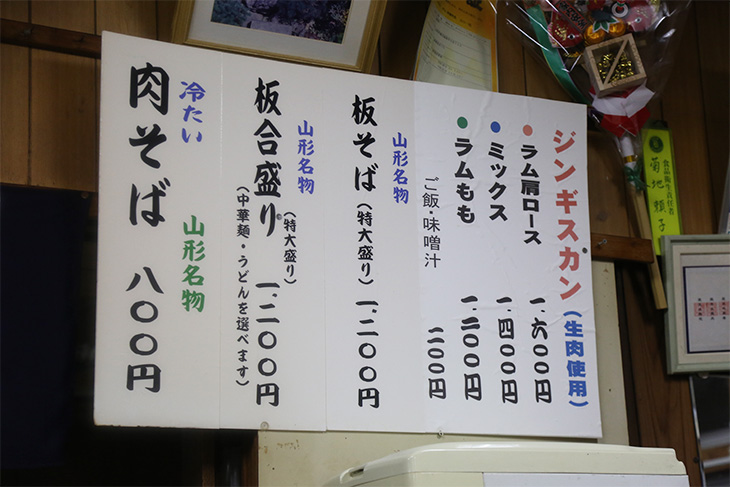 ジンギスカン(生肉使用)
ラム肩ロース 一、六〇〇円
ミックス 一、四〇〇円
ラムもも 一、二〇〇円
ご飯・味噌汁 二〇〇円
山形名物
板そば(特大盛り) 一、二〇〇円
山形名物
板合盛り(特大盛り) 一、二〇〇円
(中華麺・うどんを選べます)
冷たい
肉そば 八〇〇円
山形名物
食品衛生責任者
菊地 頼子